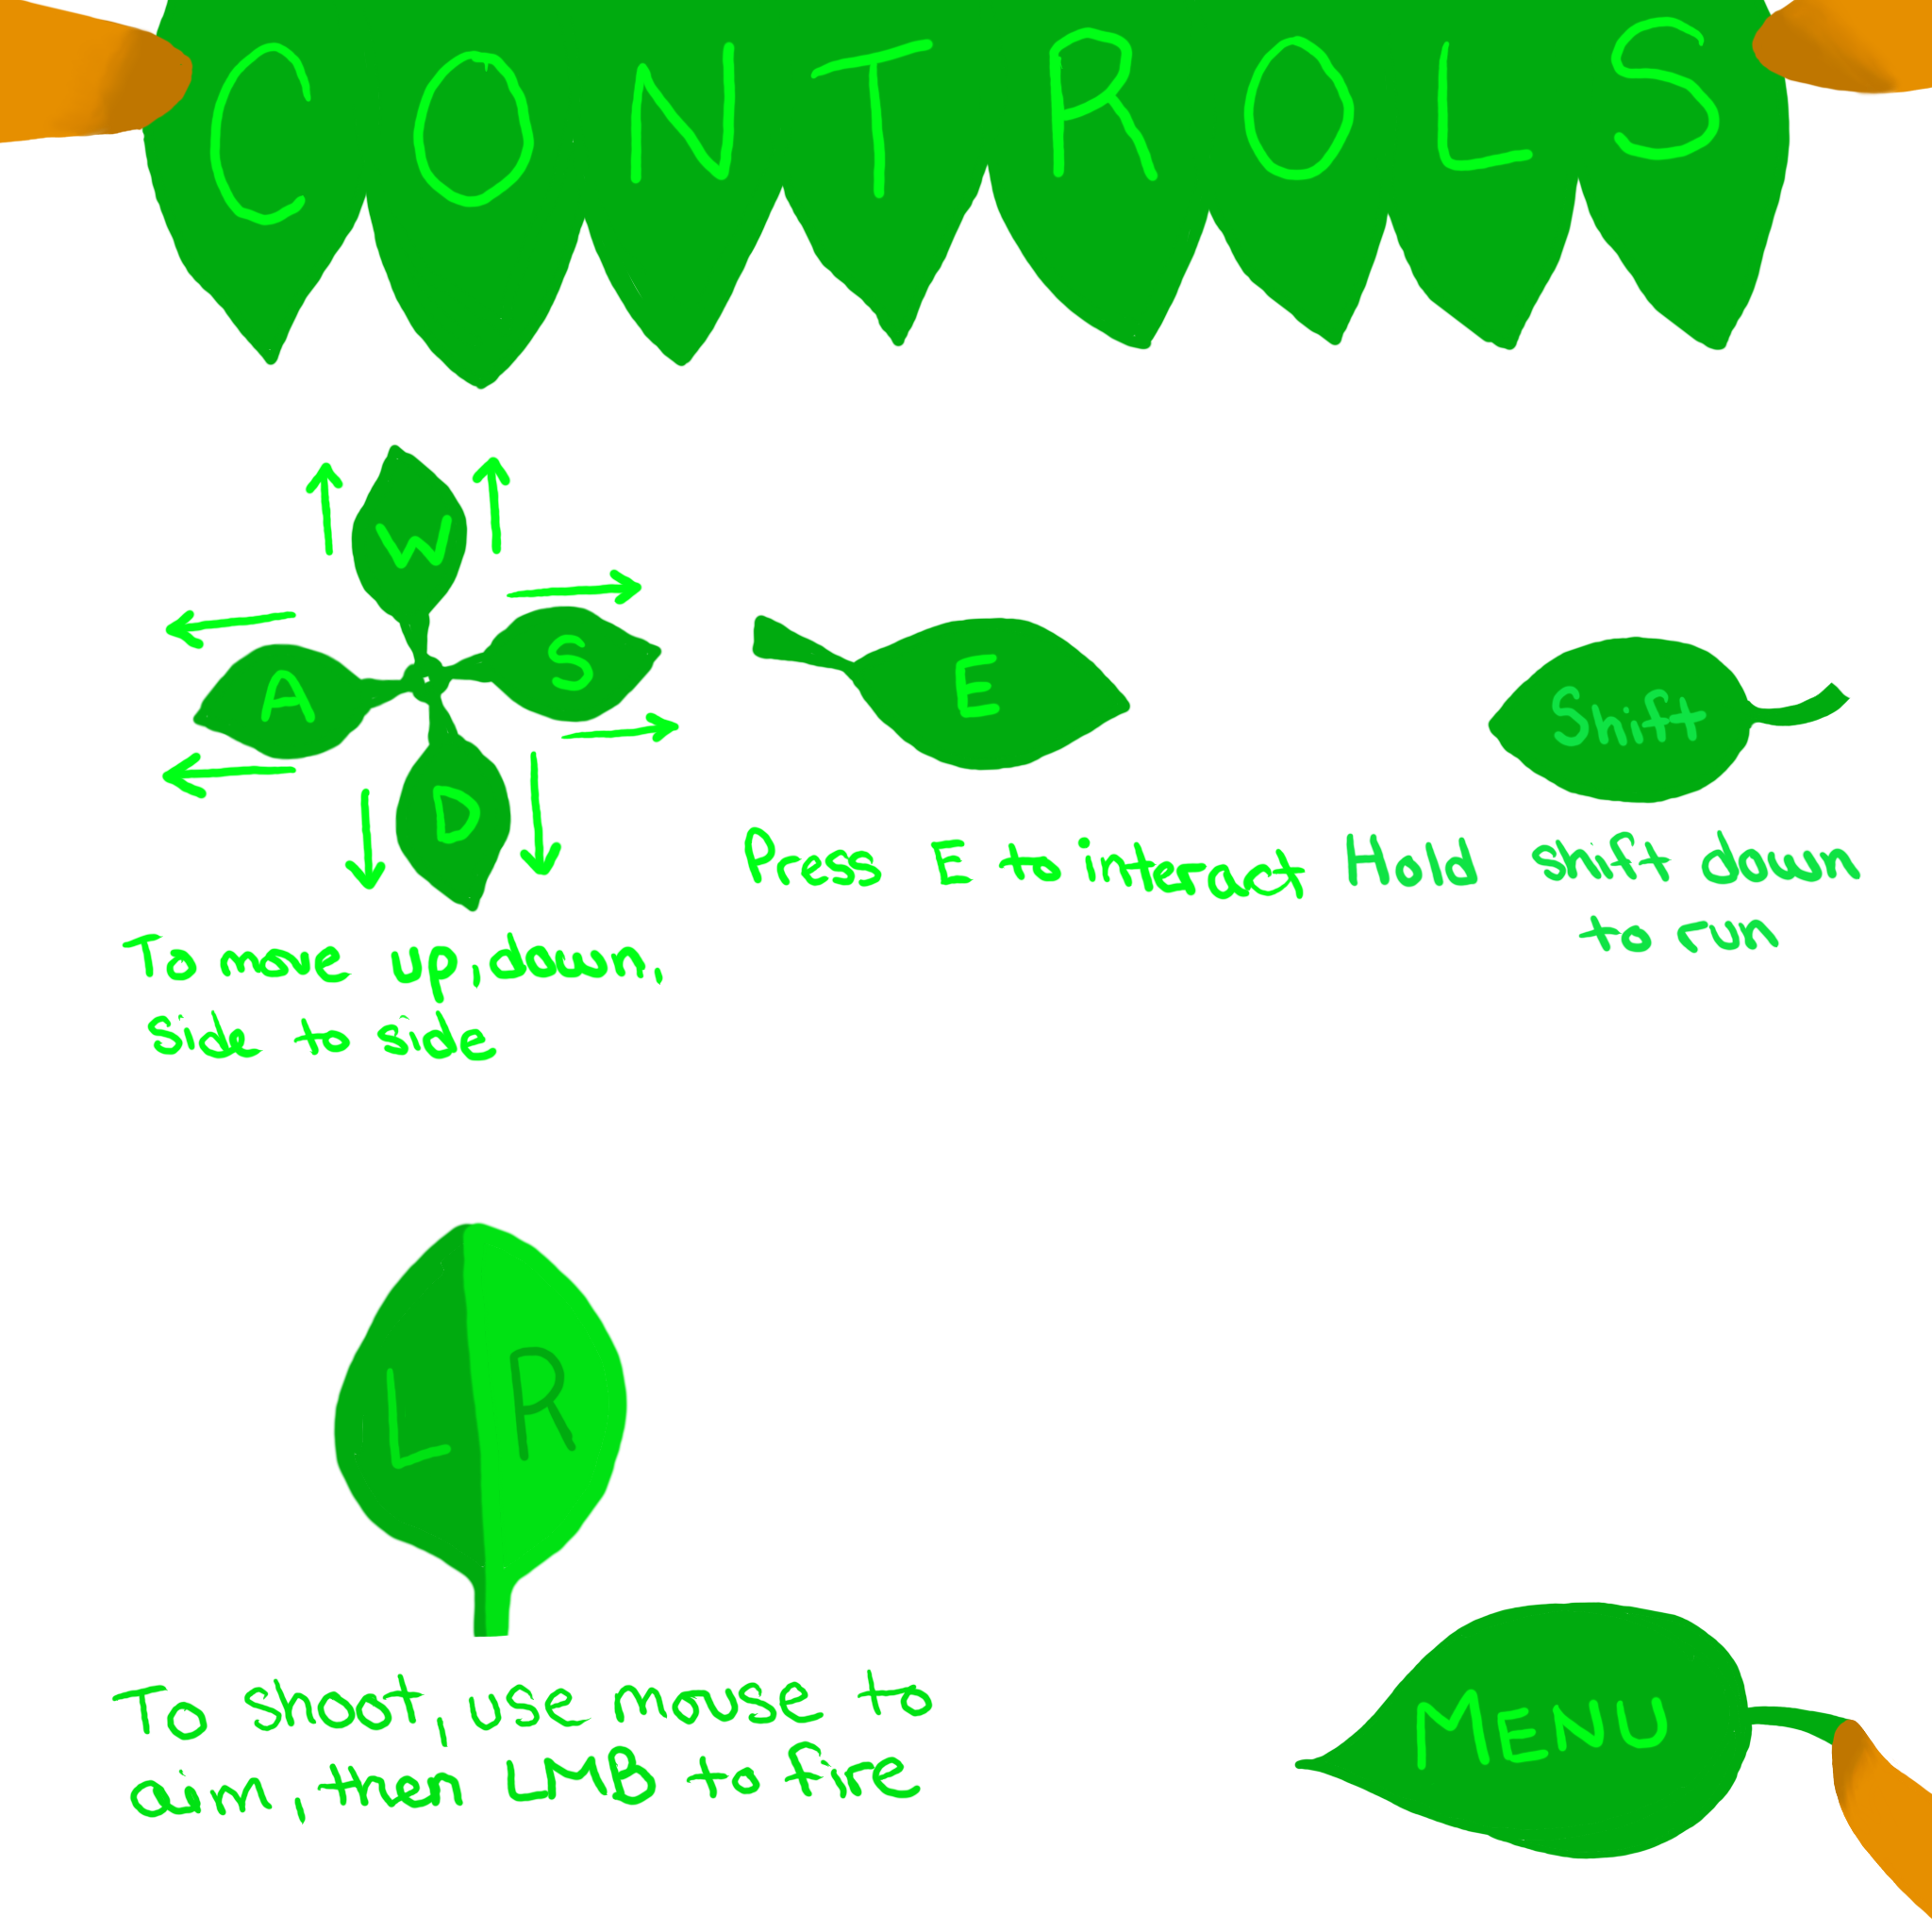 CONTROLS
W
A
S
D
E
Shift
To move up, down,
side to side
Press E to interact
Hold shift down
to run
L R
To shoot, use mouse to
aim, then LMB to fire
MENU